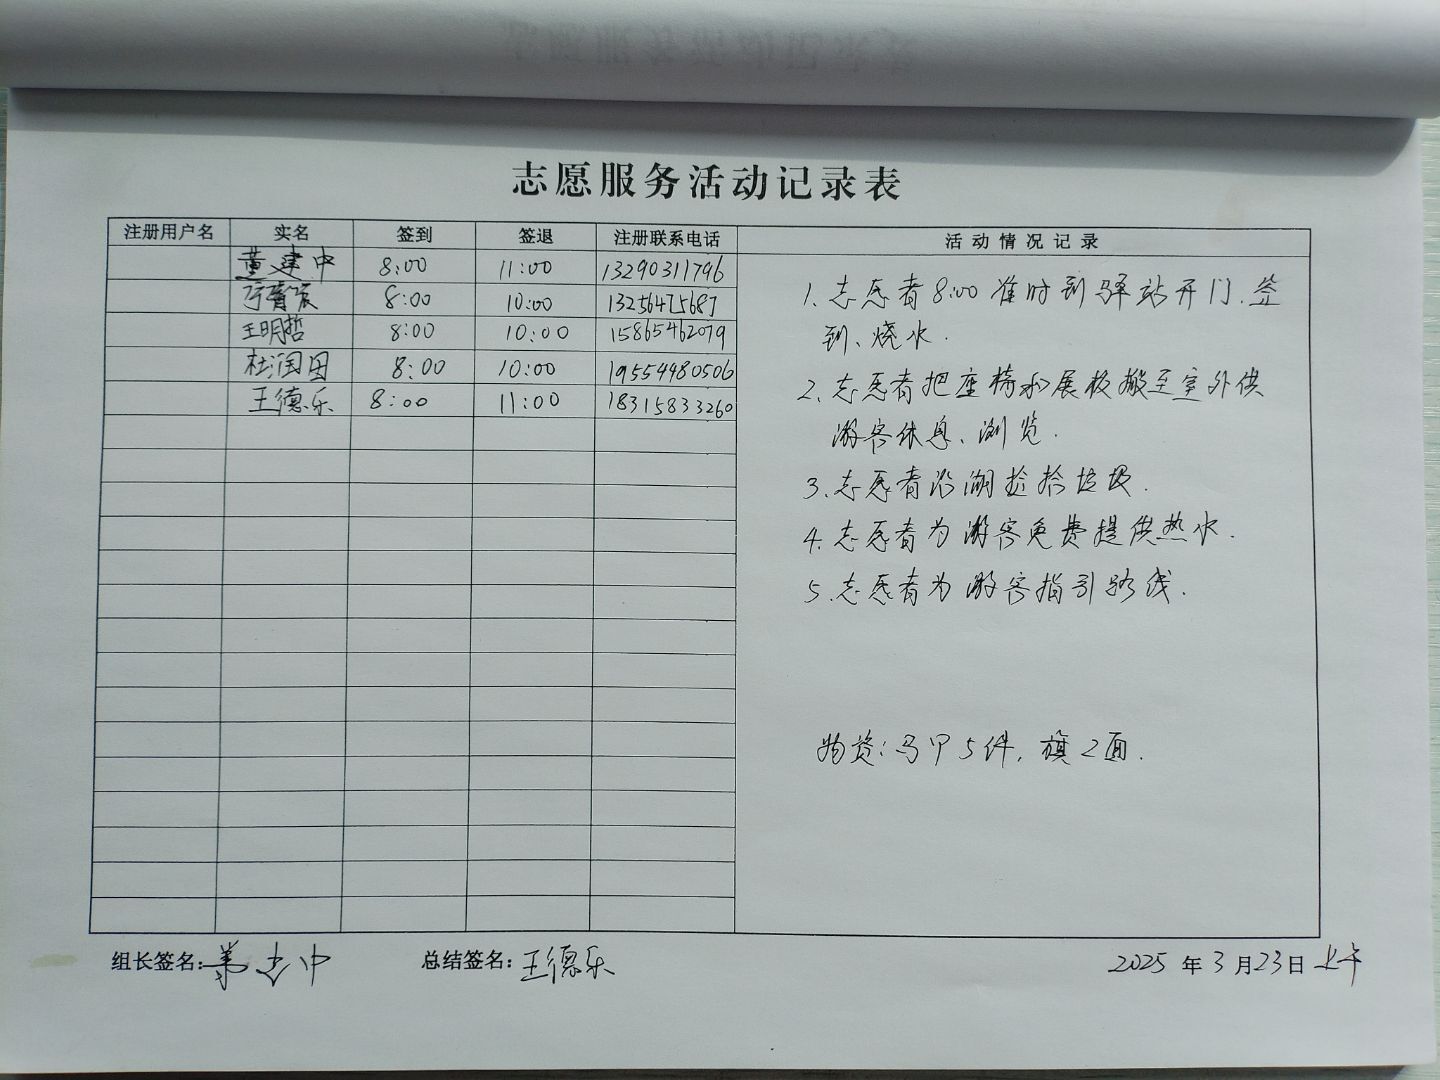 志愿服务活动记录表
注册用户名 实名 签到 签退 注册联系电话 活动情况记录
黄建中 8:00 11:00 13290311796
8:00 10:00 13256475687
王明哲 8:00 10:00 15865462079
杜润田 8:00 10:00 19554980506
王德乐 8:00 11:00 18315833260
1. 志愿者8:00准时到驿站开门、签
到、烧水.
2. 志愿者把座椅和展板搬至室外供
游客休息、浏览.
3. 志愿者沿湖捡拾垃圾.
4. 志愿者为游客免费提供热水.
5. 志愿者为游客指引路线.
物资:马甲5件,旗2面.
组长签名:黄建中 总结签名:王德乐 2025年3月23日 上午